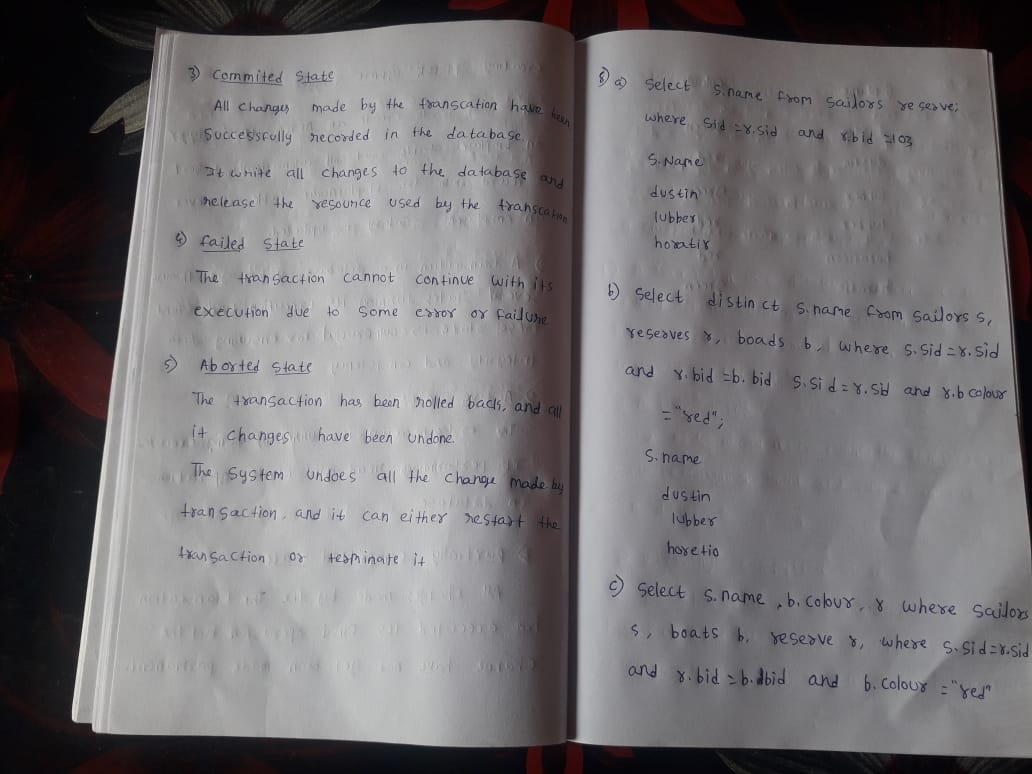 3) Commited State
All Changes made by the transcation have been
Successfully recorded in the database.
It write all changes to the database and
release the resource used by the transcation
4) failed State
The transaction cannot continue with its
execution due to some error or failure
5) Aborted State
The transaction has been rolled back, and all
it changes have been undone.
The System undoes all the change made by
transaction. and it can either restart the
transaction or terminate it
8) a) Select S.name from sailors reserve;
where sid = r.sid and r.bid = 103
S.Name
dustin
lubber
horatir
b) Select distinct S.name from sailors s,
reserves r, boads b, where s.sid = r.sid
and r.bid = b.bid S.sid = r.sid and r.b colour
= "red";
S.name
dustin
lubber
horetio
c) Select S.name, b.colour, r where sailors
s, boats b, reserve r, where s.sid = r.sid
and r.bid = b.bid and b.colour = "red"